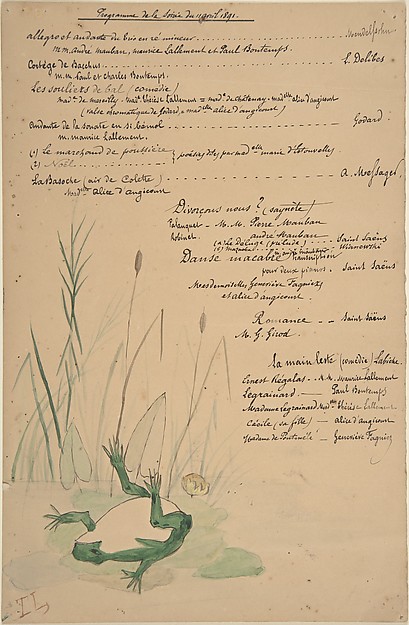 Programme de la Soirée du 11 avril 1891.
allegro et andante du trio en ré mineur ........ Mendelssohn
M.M. André Mauban, Maurice Lallement et Paul Bontemps.
Cortège de Bacchus ........ L. Delibes
M.M. Paul et Charles Bontemps.
Les souliers de bal (comédie)
Thérèse Lallement = Mad. de Châtenay - Mad^elle alice d'angicourt
(valse chromatique de Godard = Mad^elle alice d'angicourt)
andante de la sonate en si bémol ........ Godard
M. Maurice Lallement.
(1) Le marchand de poussière
(2) Noël
poésies dites par mad^elle marie d'Estouvelles
La Basoche (air de Colette) ........ A. Messager
Mad^elle Alice d'angicourt
Divorçons nous? (saynète)
M.M. Pierre Mauban
andré Mauban
(1) Le Déluge (prélude) .... Saint Saëns
Danse macabre transcription
pour deux pianos. Saint Saëns
Mesdemoiselles Geneviève Fagniez
et alice d'angicourt.
Romance -- Saint Saëns
M. G. Girod.
La main leste (comédie) Labiche.
Ernest Régalas - M.M. Maurice Lallement
Legrainard — Paul Bontemps
Madame Legrainard Mad^elle Thérèse Lallement
Cécile (sa fille) — alice d'angicourt
Madame de — Geneviève Fagniez